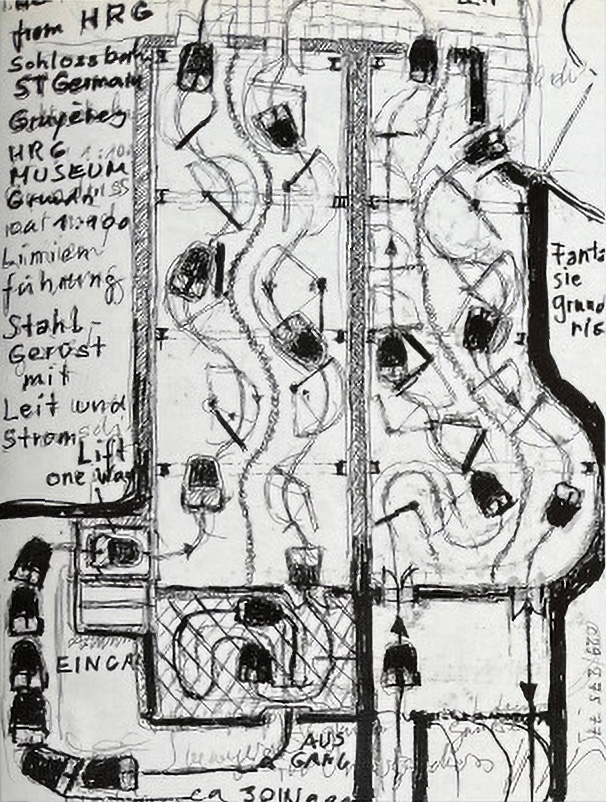 from HRG
Schlossbah
ST German
Gruyères
HRG
MUSEUM
Grundriss
führung
Stahl-
Gerüst
mit
Leit und
Strom
Lift
one way
Fanta
sie
grund
ris
EINGA
AUS
GANG
ca 30 Wagen